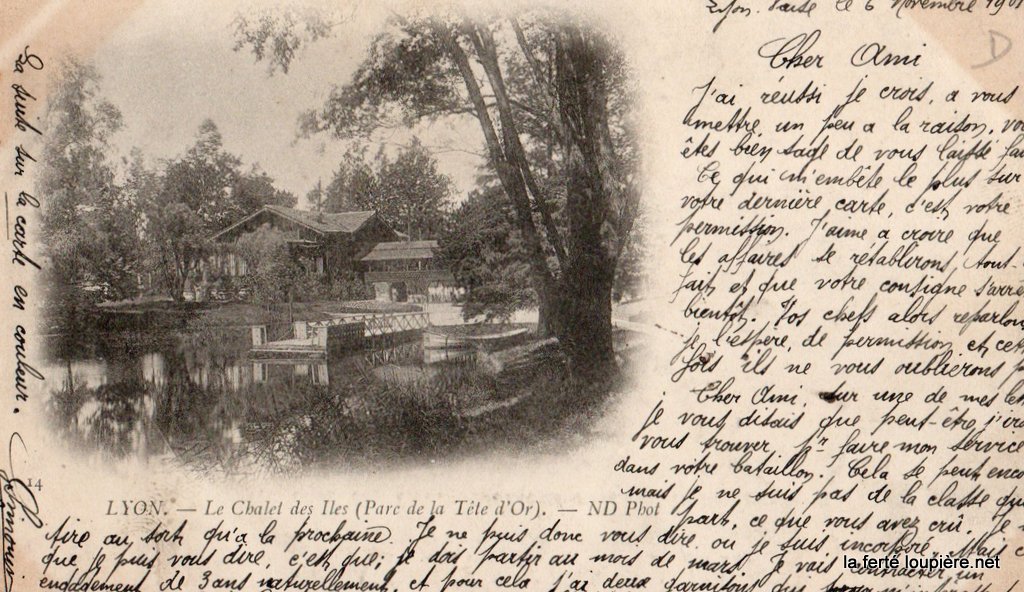 Lyon. Vaise le 6 Novembre 190
D
Cher Ami
J'ai réussi je crois, a vous
mettre un peu a la raison, vo
êtes bien sage de vous laissé fai
Ce qui m'embête le plus sur
votre dernière carte, c'est votre
permission. J'aime a croire que
les affaires se rétablirons, tout-
fait et que votre consigne s'arrê
bientôt. Vos chefs alors reparlon
je l'espère, de permission et cet
fois ils ne vous oublierons p
Cher Ami, sur une de mes let
je vous disais que peut-être j'ir
vous trouver pr faire mon service
dans votre bataillon. Cela se peut enco
mais je ne suis pas de la classe qui
part, ce que vous avez crû. Je
tire au sort qu'a la prochaine. Je ne puis donc vous dire ou je suis incorporé. Mais c
que je puis vous dire, c'est que; je dois partir au mois de mars. Je vais contracter un
engagement de 3 ans naturellement, et pour cela j'ai deux garnisons qui
La suite sur la carte en couleur.
Simonis
14
LYON. — Le Chalet des Iles (Parc de la Tête d'Or). — ND Phot
la ferté loupière.net